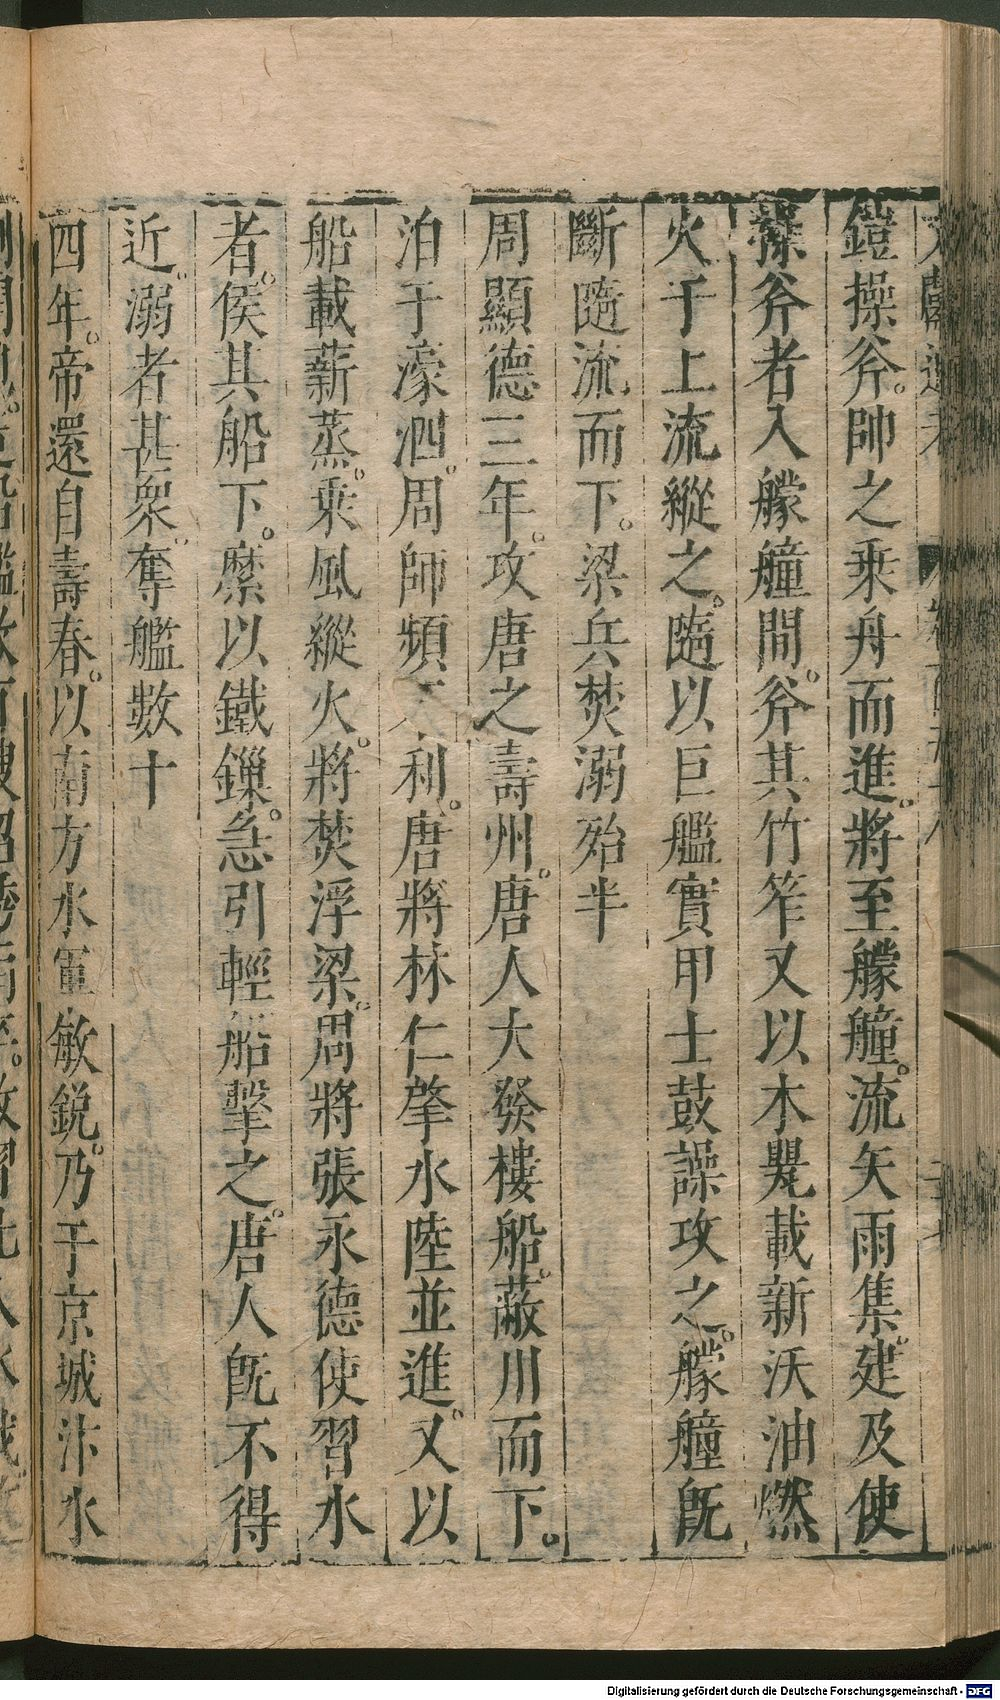 鎧操斧。帥之乗舟而進。將至艨艟。流矢雨集。建及使
操斧者入艨艟間。斧其竹笮又以木甖載新沃油燃
火于上流縱之。隨以巨艦實甲士鼓譟攻之。艨艟旣
斷隨流而下。梁兵焚溺殆半
周顯德三年。攻唐之壽州。唐人大發樓船。蔽川而下。
泊于濠泗。周師頻不利。唐將林仁肇水陸並進。又以
船載薪蒸。乗風縱火。將焚浮梁。周將張永德使習水
者。俟其船下。縻以鐵鏁。急引輕船擊之。唐人旣不得
近。溺者甚衆。奪艦數十
四年。帝還自壽春。以南方水軍敏銳。乃于京城汴水
Digitalisierung gefördert durch die Deutsche Forschungsgemeinschaft - DFG